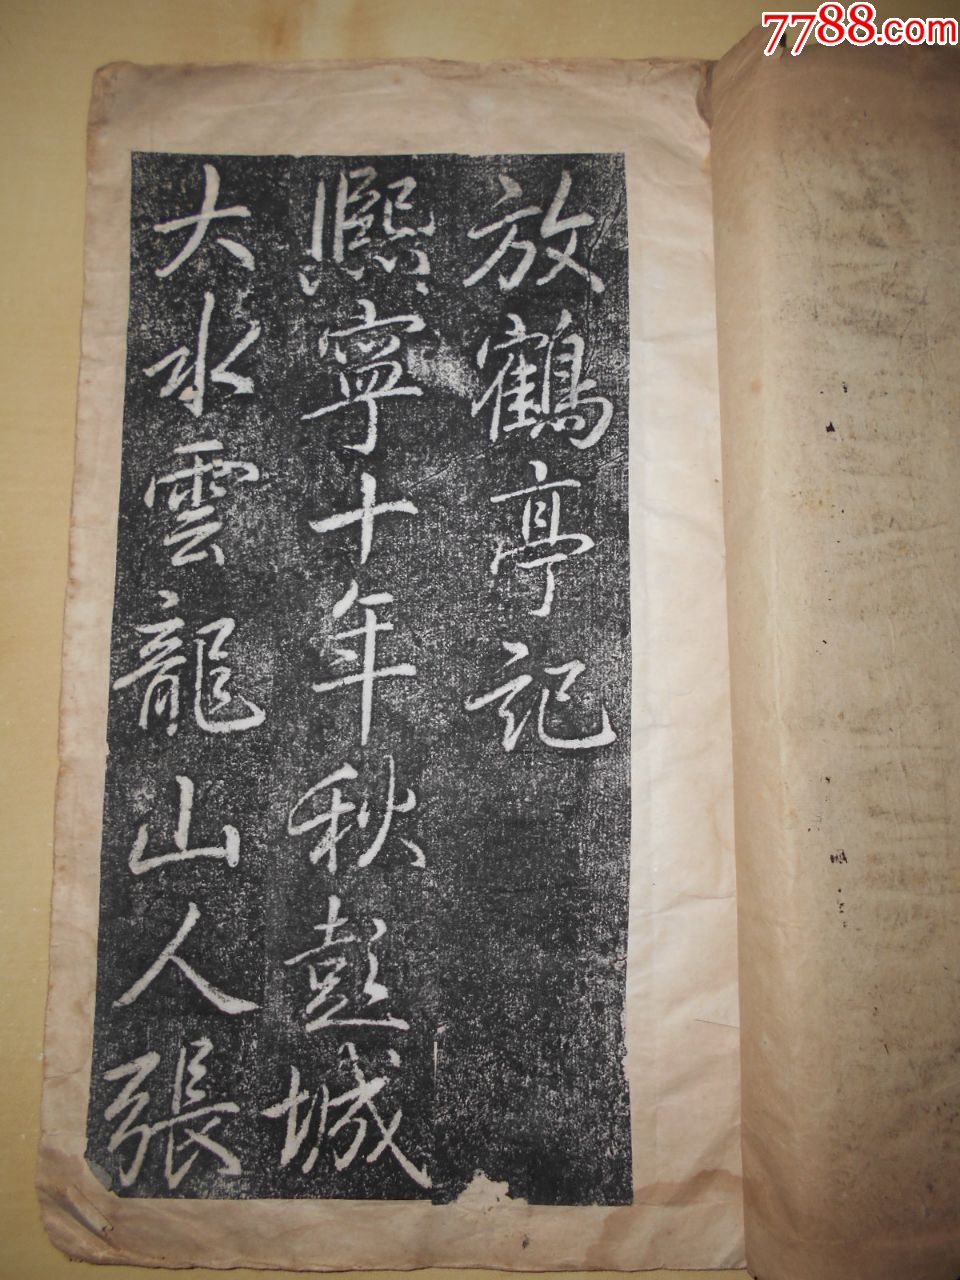 7788.com
放鶴亭記
熙寧十年秋彭城
大水雲龍山人張